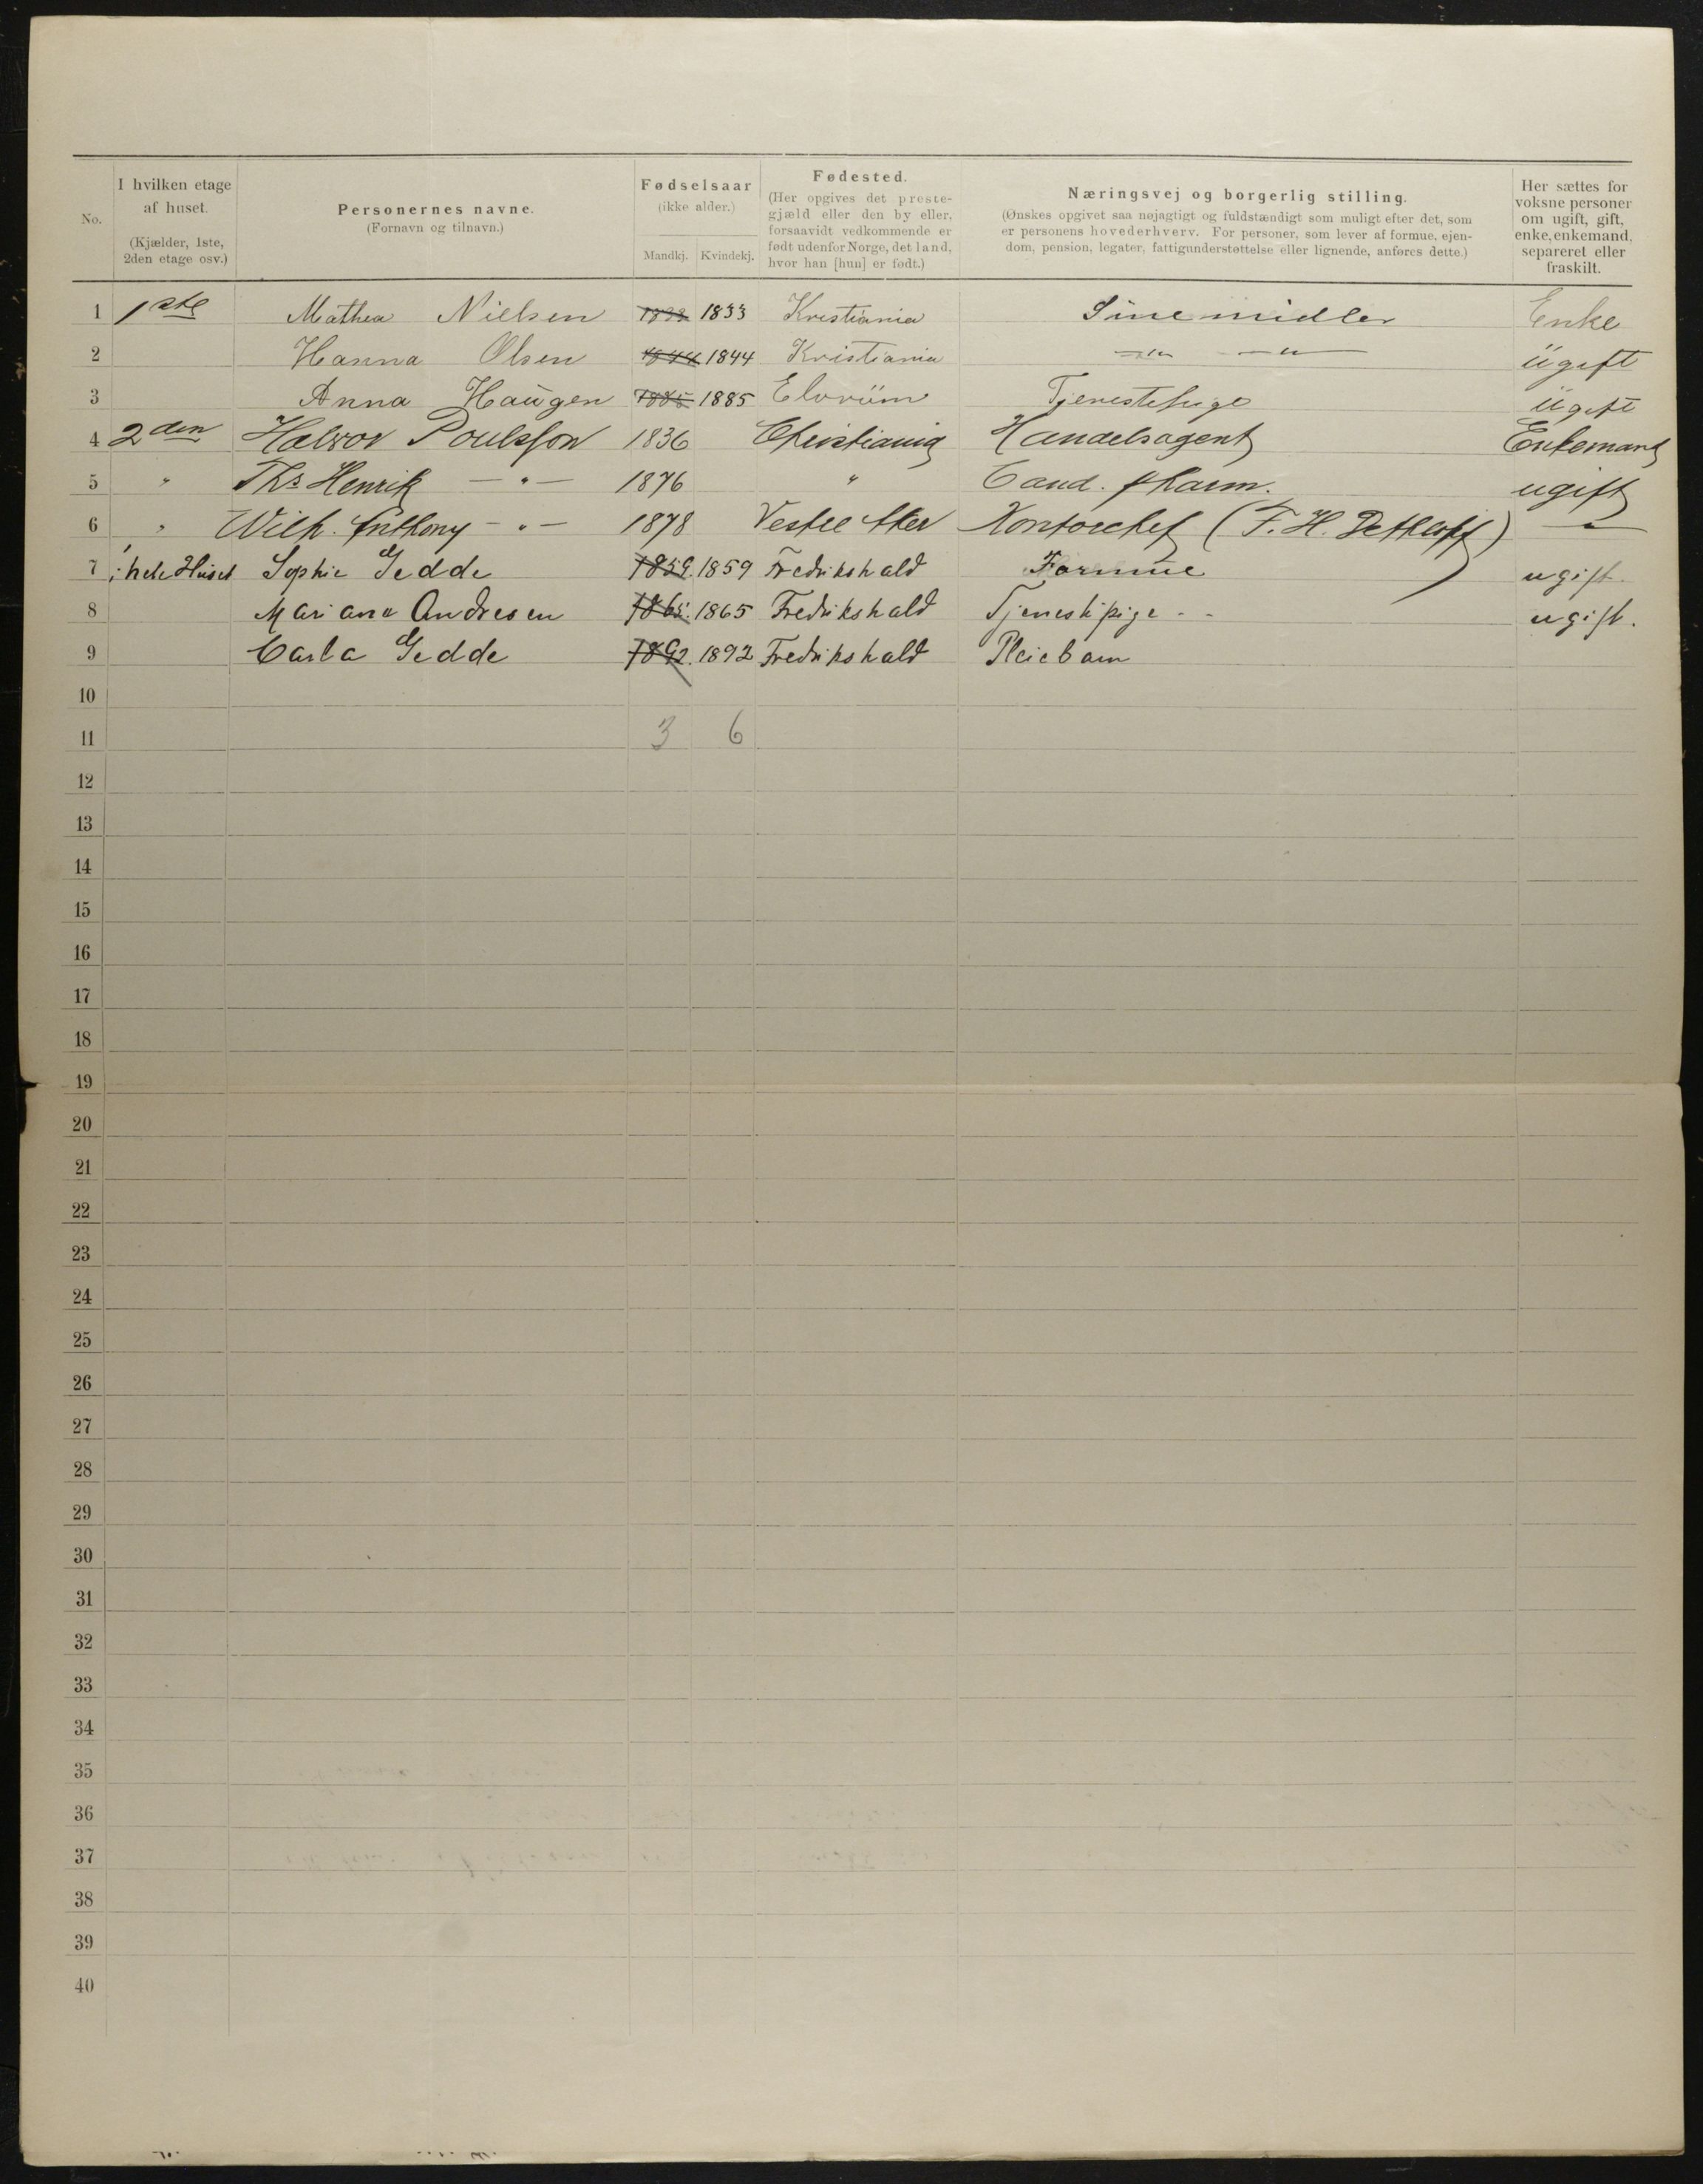 No. | I hvilken etage af huset. (Kjælder, 1ste, 2den etage osv.) | Personernes navne. (Fornavn og tilnavn.) | Fødselsaar (ikke alder.) Mandkj. Kvindekj. | Fødested. (Her opgives det prestegjæld eller den by eller, forsaavidt vedkommende er født udenfor Norge, det land, hvor han [hun] er født.) | Næringsvej og borgerlig stilling. (Ønskes opgivet saa nøjagtigt og fuldstændigt som muligt efter det, som er personens hovederhverv. For personer, som lever af formue, ejendom, pension, legater, fattigunderstøttelse eller lignende, anføres dette.) | Her sættes for voksne personer om ugift, gift, enke, enkemand, separeret eller fraskilt.
1 1ste Mathea Nielsen 1833 1833 Kristiania Sine midler Enke
2 Hanna Olsen 1844 1844 Kristiania — " — — " — ügift
3 Anna Haugen 1885 1885 Elvrüm Tjenestepige ügift
4 2den Halvor Poulsson 1836 Christiania Handelsagent Enkemand
5 " Ths Henrik — " — 1876 " Cand. pharm. ugift
6 " Wilh. Anthony — " — 1878 Vestre Aker Kontorchef (F. H. Dethloff) — " —
7 i hele Huset Sophie Gedde 1859. 1859 Fredrikshald Formue ugift.
8 Mariane Andresen 1865. 1865 Fredrikshald Tjenestepige - - ugift.
9 Carla Gedde 1892. 1892 Fredrikshald Pleiebarn
10
11 3 6
12
13
14
15
16
17
18
19
20
21
22
23
24
25
26
27
28
29
30
31
32
33
34
35
36
37
38
39
40